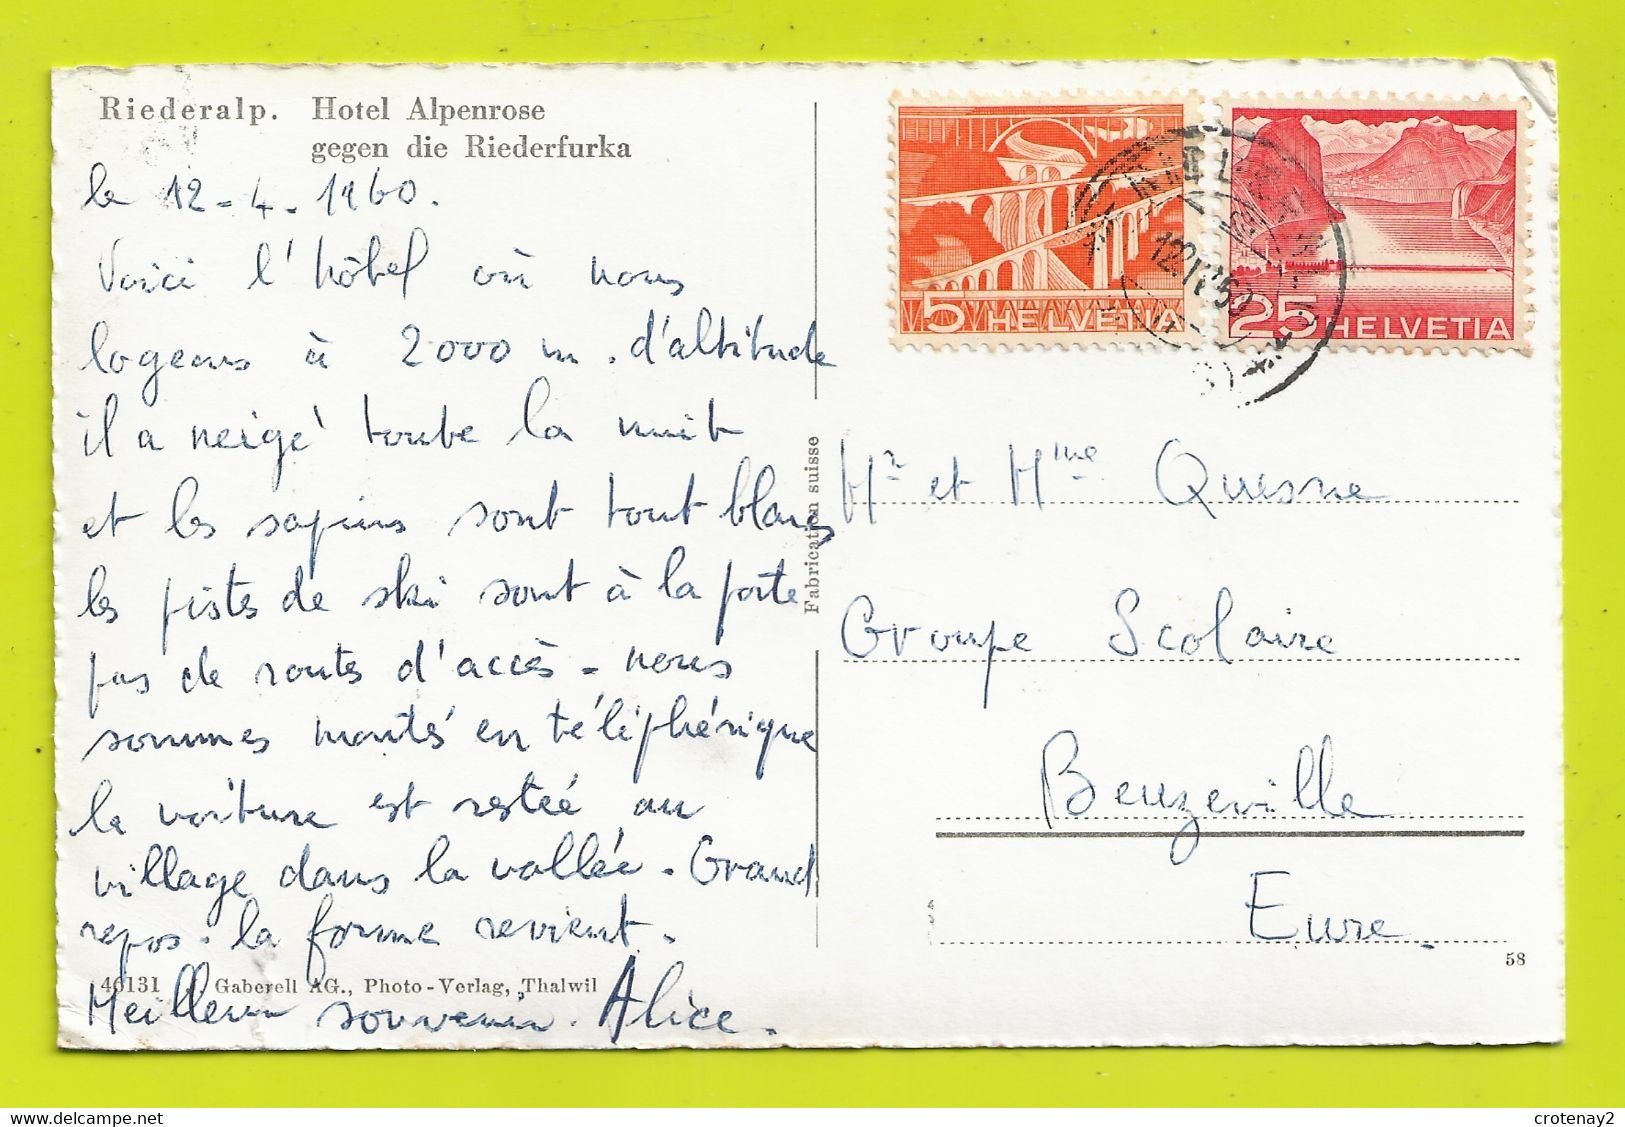 Riederalp. Hotel Alpenrose
gegen die Riederfurka
le 12-4-1960.
Voici l'hôtel où nous
logeons à 2000 m. d'altitude
il a neigé toute la nuit
et les sapins sont tout blancs
les pistes de ski sont à la porte
pas de routes d'accès - nous
sommes montés en téléphérique
la voiture est restée au
village dans la vallée - Grand
repos. la forme revient.
Meilleur souvenir. Alice.
46131 Gaberell AG., Photo-Verlag, Thalwil
Fabrication suisse
5 HELVETIA
25 HELVETIA
Mr et Mme Quesne
Groupe Scolaire
Beuzeville
Eure.
58
crotenay2